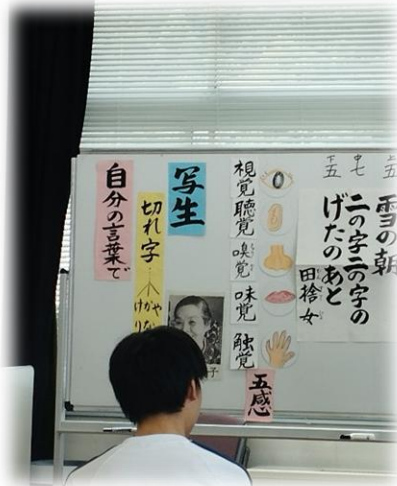 上五
中七
下五
雪の朝
二の字二の字の
げたのあと
田捨女
視覚
聴覚
嗅覚
味覚
触覚
五感
写生
切れ字
や
かな
けり
自分の言葉で
子